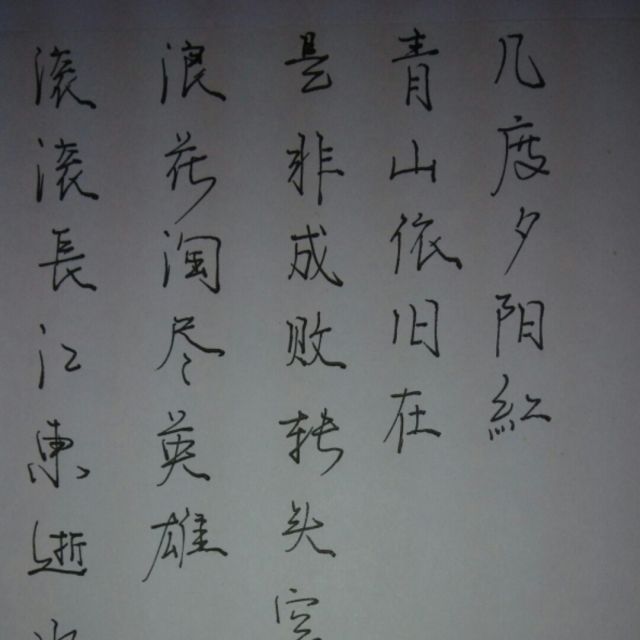 滚滚長江東逝水
浪花淘尽英雄
是非成败转头空
青山依旧在
几度夕阳紅